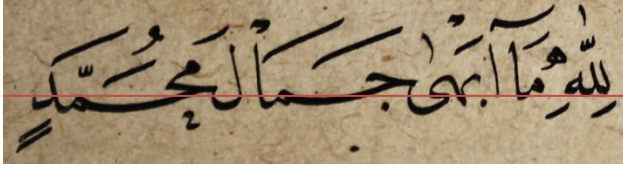 لِلّٰهِ مَا أَبْهَىٰ جَمَالَ مُحَمَّدٍ